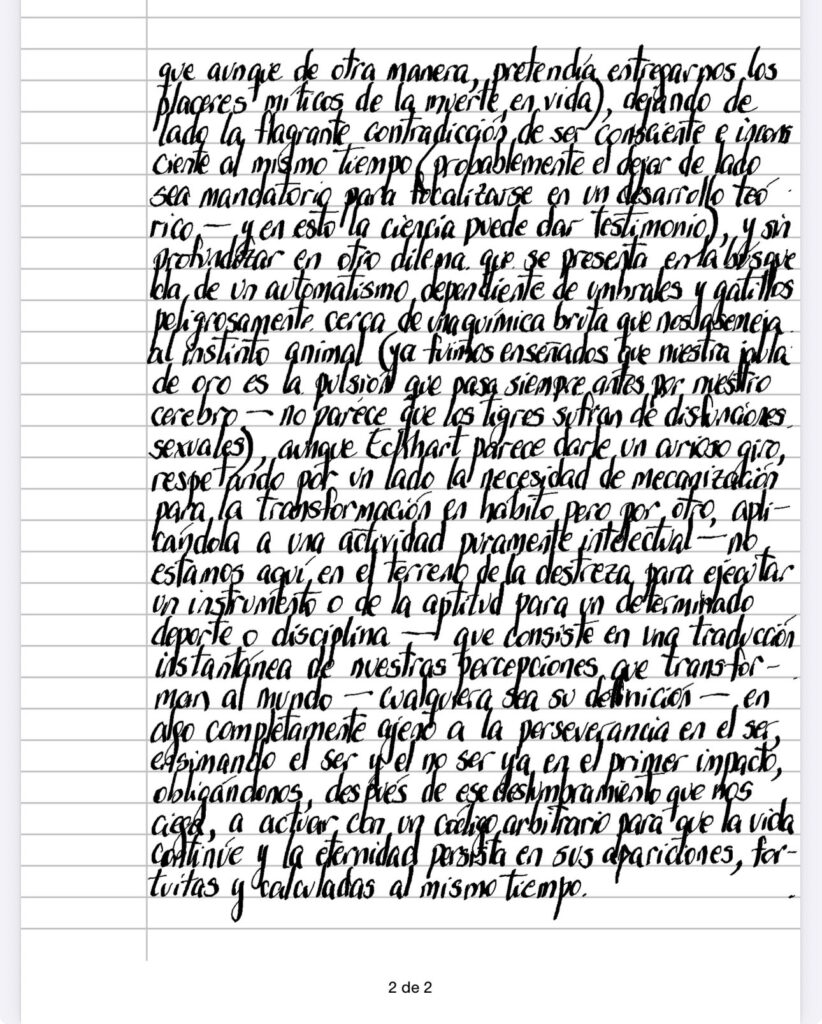 que aunque de otra manera, pretendía entregarnos los
placeres míticos de la muerte en vida), dejando de
lado la flagrante contradicción de ser consciente e incons
ciente al mismo tiempo (probablemente el dejar de lado
sea mandatorio para focalizarse en un desarrollo teó
rico — y en esto la ciencia puede dar testimonio), y sin
profundizar en otro dilema que se presenta en la búsque
da de un automatismo dependiente de umbrales y gatillos
peligrosamente cerca de una química bruta que nos asemeja
al instinto animal (ya fuimos enseñados que nuestra jaula
de oro es la pulsión que pasa siempre antes por nuestro
cerebro — no parece que los tigres sufran de disfunciones
sexuales), aunque Eckhart parece darle un curioso giro,
respetando por un lado la necesidad de mecanización
para la transformación en hábito pero por otro, apli-
cándola a una actividad puramente intelectual — no
estamos aquí en el terreno de la destreza para ejecutar
un instrumento o de la aptitud para un determinado
deporte o disciplina — que consiste en una traducción
instantánea de nuestras percepciones que transfor-
man al mundo — cualquiera sea su definición — en
algo completamente ajeno a la perseverancia en el ser,
el ser y el no ser ya en el primer impacto,
obligándonos, después de ese deslumbramiento que nos
ciega, a actuar con un código arbitrario para que la vida
continúe y la eternidad persista en sus apariciones, for-
tuitas y calculadas al mismo tiempo.
2 de 2